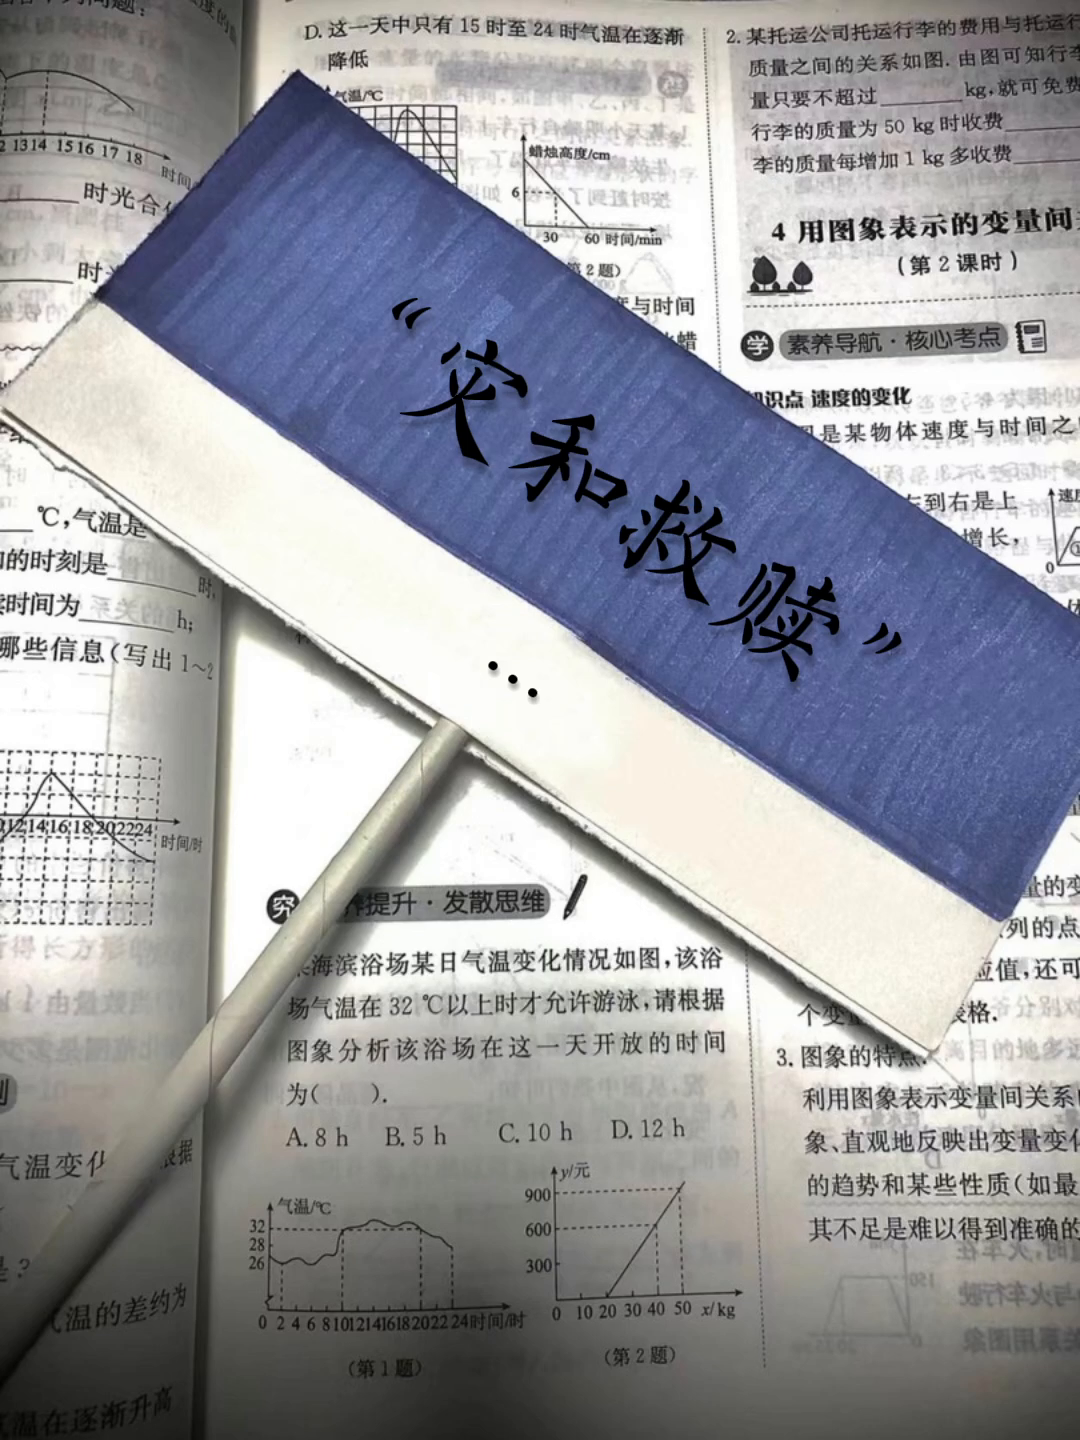 D. 这一天中只有 15 时至 24 时气温在逐渐
降低
气温/℃
蜡烛高度/cm
6
30 60 时间/min
第 2 题)
度与时间
蜡
2 1314 15 16 17 18
时间
时光合
时
℃,气温是
的时刻是 时,
时间为 h;
哪些信息(写出 1~2
121416182022 24 时间/时
气温变化 根据
气温的差约为
气温在逐渐升高
“灾和救赎”
...
究 养提升·发散思维
海滨浴场某日气温变化情况如图,该浴
场气温在 32 ℃以上时才允许游泳,请根据
图象分析该浴场在这一天开放的时间
为( ).
A. 8 h B. 5 h C. 10 h D. 12 h
气温/℃
32
28
26
0 2 4 6 8 10 12 14 16 18 20 22 24 时间/时
(第 1 题)
y/元
900
600
300
0 10 20 30 40 50 x/kg
(第 2 题)
2. 某托运公司托运行李的费用与托运行
质量之间的关系如图. 由图可知行李
量只要不超过 kg,就可免费
行李的质量为 50 kg 时收费
李的质量每增加 1 kg 多收费
4 用图象表示的变量间
(第 2 课时)
学 素养导航·核心考点
识点 速度的变化
是某物体速度与时间之
左到右是上
增长,
0
量的变
列的点
应值,还可
个变 表格.
3. 图象的特点.
利用图象表示变量间关系
象、直观地反映出变量变化
的趋势和某些性质(如最
其不足是难以得到准确的